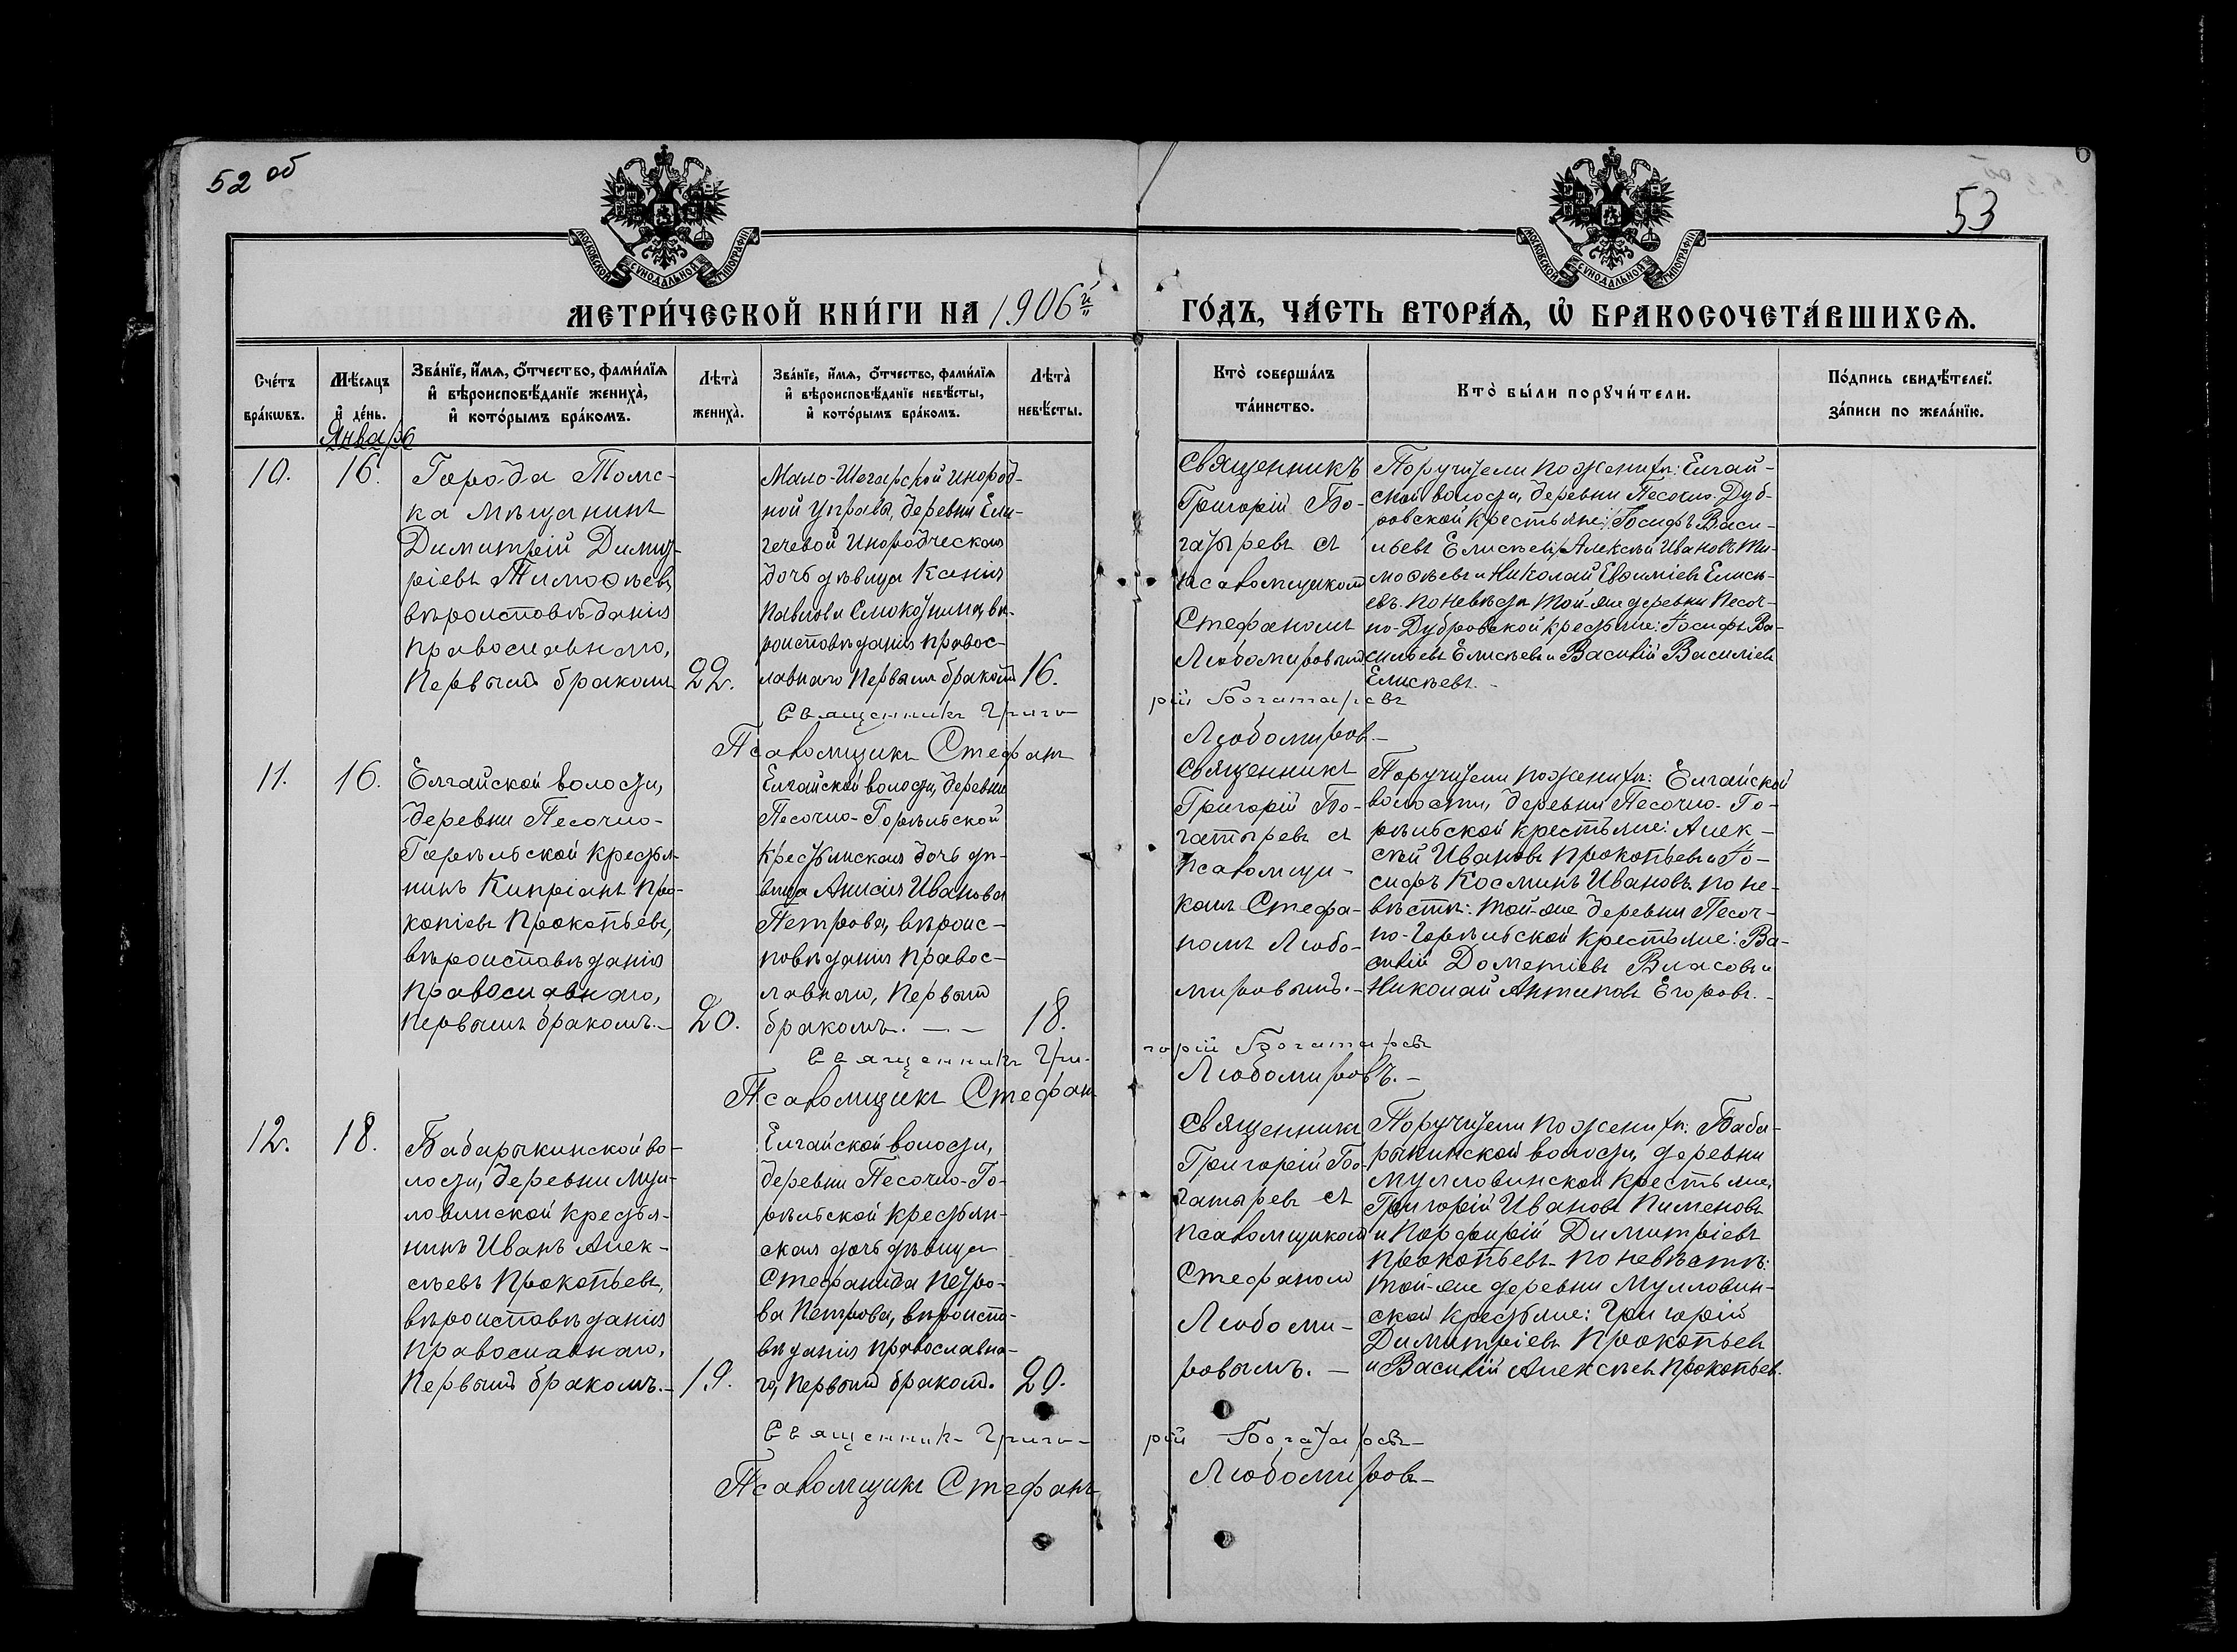 52 об
53
МОСКОВСКОЙ СѴНОДАЛЬНОЙ ТИПОГРАФІИ
МОСКОВСКОЙ СѴНОДАЛЬНОЙ ТИПОГРАФІИ
МЕТРИ́ЧЕСКОЙ КНИ́ГИ НА 1906й
ГО́ДЪ, ЧА́СТЬ ВТОРА́Ѧ, Ѡ҆ БРАКОСОЧЕТА́ВШИХСѦ.
Сче́тъ
бра́кѡвъ.
Мѣ́сяцъ
и҆ де́нь.
Январь
Зва́нїе, и҆́мѧ, ѻ҆́тчество, фами́лїѧ
и҆ вѣроисповѣ́данїе жениха̀,
и҆ кото́рымъ бра́комъ.
Лѣта̀
жениха̀.
Зва́нїе, и҆́мѧ, ѻ҆́тчество, фами́лїѧ
и҆ вѣроисповѣ́данїе невѣ́сты,
и҆ кото́рымъ бра́комъ.
Лѣта̀
невѣ́сты.
Кто̀ соверша́лъ
та́инство.
Кто̀ бы́ли порꙋчи́тели.
По́дпись свидѣ́телей
за́писи по жела́нїю.
10.
16.
Города Томс-
ка мѣщанинъ
Димитрій Димит-
ріевъ Тимоѳѣевъ,
вѣроисповѣданія
православнаго,
первымъ бракомъ
22.
Мало-Шегарской инород-
ной управы, деревни
инородческая
дочь дѣвица Ксенія
Павлова вѣ-
роисповѣданія правос-
лавнаго первымъ бракомъ
16.
Священникъ
Григорій Бо-
гатыревъ съ
псаломщикомъ
Стефаномъ
Любомировымъ
Поручители по женихѣ: Елгай-
ской волости, деревни Песочно-Дуб-
ровской крестьяне: Іосифъ Васи-
льевъ Елисѣевъ, Алексѣй Ивановъ Ти-
моѳѣевъ и Николай Евѳиміевъ Елисѣ-
евъ. По невѣстѣ той-же деревни Песоч-
но-Дубровской крестьяне: Іосифъ Ва-
сильевъ Елисѣевъ и Василій Василіевъ
Елисѣевъ. -
Священникъ Григо-
рій Богатыревъ
Псаломщикъ Стефанъ
Любомировъ -
11.
16.
Елгайской волости,
деревни Песочно-
Горѣльской крестья-
нинъ Кипріанъ Про-
копіевъ Прокопьевъ,
вѣроисповѣданія
православнаго,
первымъ бракомъ. -
20.
Елгайской волости, деревни
Песочно-Горѣльской
крестьянская дочь дѣ-
вица Анисія Иванова
Петрова, вѣроис-
повѣданія правос-
лавнаго, первымъ
бракомъ. — —
18.
Священникъ
Григорій Бо-
гатыревъ съ
псаломщи-
комъ Стефа-
номъ Любо-
мировымъ. -
Поручители по женихѣ: Елгайской
волости, деревни Песочно-Го-
рѣльской крестьяне: Алек-
сѣй Ивановъ Прокопьевъ и Іо-
сифъ Косминъ Ивановъ. По не-
вѣстѣ: той-же деревни Песоч-
но-Горѣльской крестьяне: Ва-
силій Дометіевъ Власовъ и
Николай Антиповъ Егоровъ. -
Священникъ Гри-
горій Богатыревъ
Псаломщикъ Стефанъ
Любомировъ. -
12.
18.
Бабарыкинской во-
лости, деревни Мул-
ловинской крестья-
нинъ Иванъ Алек-
сѣевъ Прокопьевъ,
вѣроисповѣданія
православнаго,
первымъ бракомъ. -
19.
Елгайской волости,
деревни Песочно-Го-
рѣльской крестьян-
ская дочь дѣвица
Стефанида Петро-
ва Петрова, вѣроиспо-
вѣданія православна-
го, первымъ бракомъ.
20.
Священникъ
Григорій Бо-
гатыревъ съ
псаломщикомъ
Стефаномъ
Любоми-
ровымъ. —
Поручители по женихѣ: Баба-
рыкинской волости, деревни
Мулловинской крестьяне,
Григорій Ивановъ Пименовъ
и Порфирій Димитріевъ
Прокопьевъ. По невѣстѣ:
той-же деревни Мулловин-
ской крестьяне: Григорій
Димитріевъ Прокопьевъ
и Василій Алексѣевъ Прокопьевъ.
Священникъ Григо-
рій Богатыревъ
Псаломщикъ Стефанъ
Любомировъ